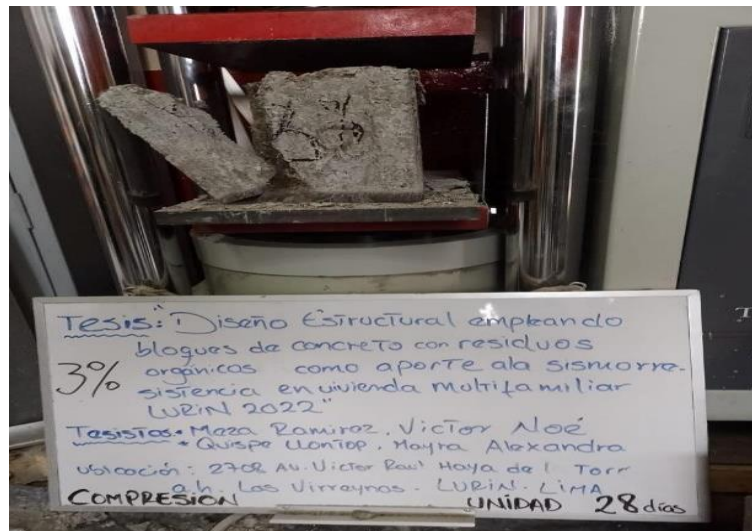 Tesis: "Diseño Estructural empleando
bloques de concreto con residuos
3% orgánicos como aporte ala sismorre-
sistencia en vivienda multifamiliar
LURIN 2022"
Tesistas • Meza Ramirez, Victor Noé
• Quispe Llontop, Mayra Alexandra
Ubicación: 2702 Av. Victor Raul Haya de l Torr
a.h. Los Virreynos - LURIN - LIMA
COMPRESIÓN UNIDAD 28 días